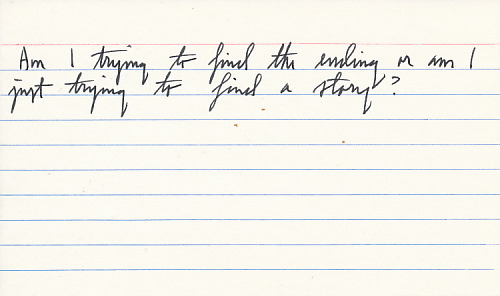 Am I trying to find the ending or am I
just trying to find a story?